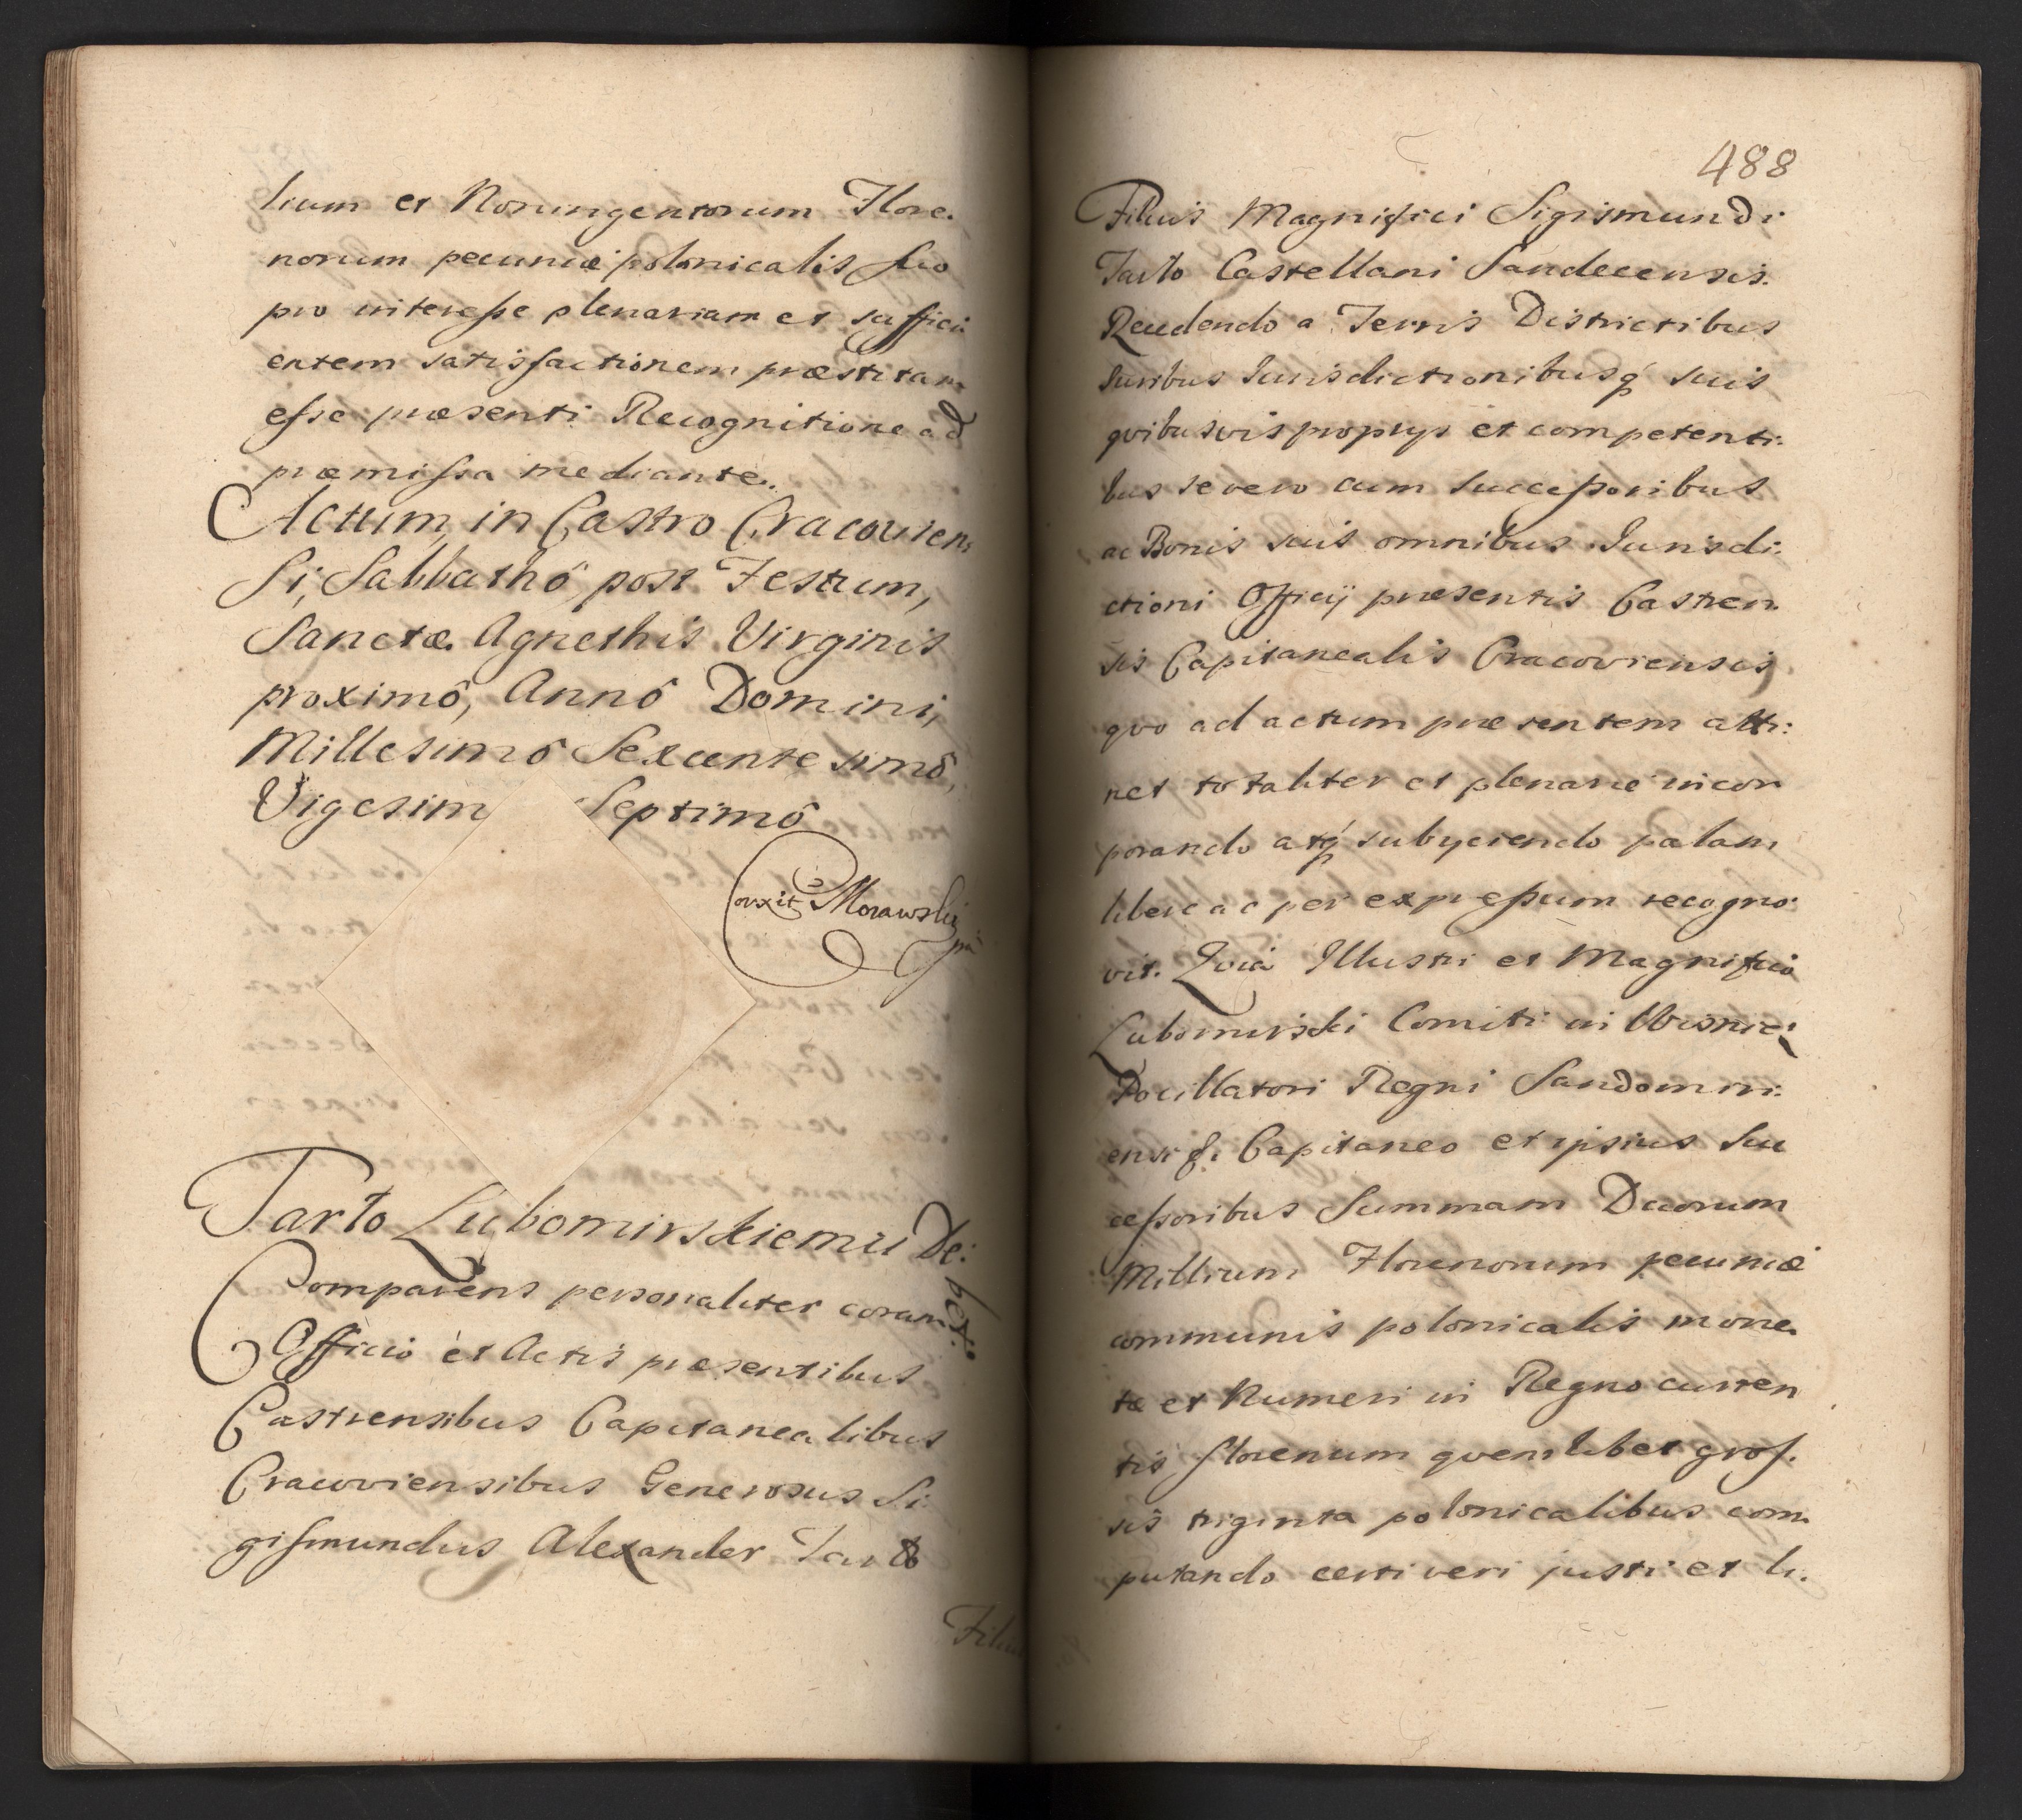 lium et Noningentorum Flore.
norum pecuniæ polonicalis suo
pro interesse plenariam et suffici
entem satisfactionem præstitam
esse præsenti Recognitione ad
præmissa mediante.
Actum, in Castro Cracovien
si, Sabbathô post Festum,
Sanctæ Agnethis Virginis
proximô, Annô Domini,
Millesimô Sexcentesimô,
Vigesim Septimô
Corxit Morawski
mp
Tarło Lubomirskiemu De:
bet.
Comparens personaliter coram
Officio et Actis præsentibus
Castrensibus Capitanealibus
Cracoviensibus Generosus Si
gismundus Alexander Tarło
Filius
488
Filius Magnifici Sigismundi
Tarło Castellani Sandecensis.
Recedendo a Terris Districtibus
Iuribus Iurisdictionibusq́ suis
qvibusvis proprys et competenti:
bus se vero cum successoribus
ac Bonis suis omnibus Iurisdi:
ctioni Officÿ præsentis Castren
sis Capitanealis Cracoviensis
qvo ad actum præsentem atti:
net totaliter et plenarie incor
porando atq́ subyciendo palam
libere ac per expressum recogno:
vit. Qvia Illustri et Magnifico
Lubomirski Comiti in Wisnicz
Pocillatori Regni Sandomiri:
ensi &. Capitaneo et ipsius Suc
cessoribus Summam Decem
Millium Florenorum pecuniæ
communis polonicalis mone.
tæ et Numeri in Regno curren
tis florenum qvemlibet gros.
sis triginta polonicalibus com.
putando certi veri justi et li.